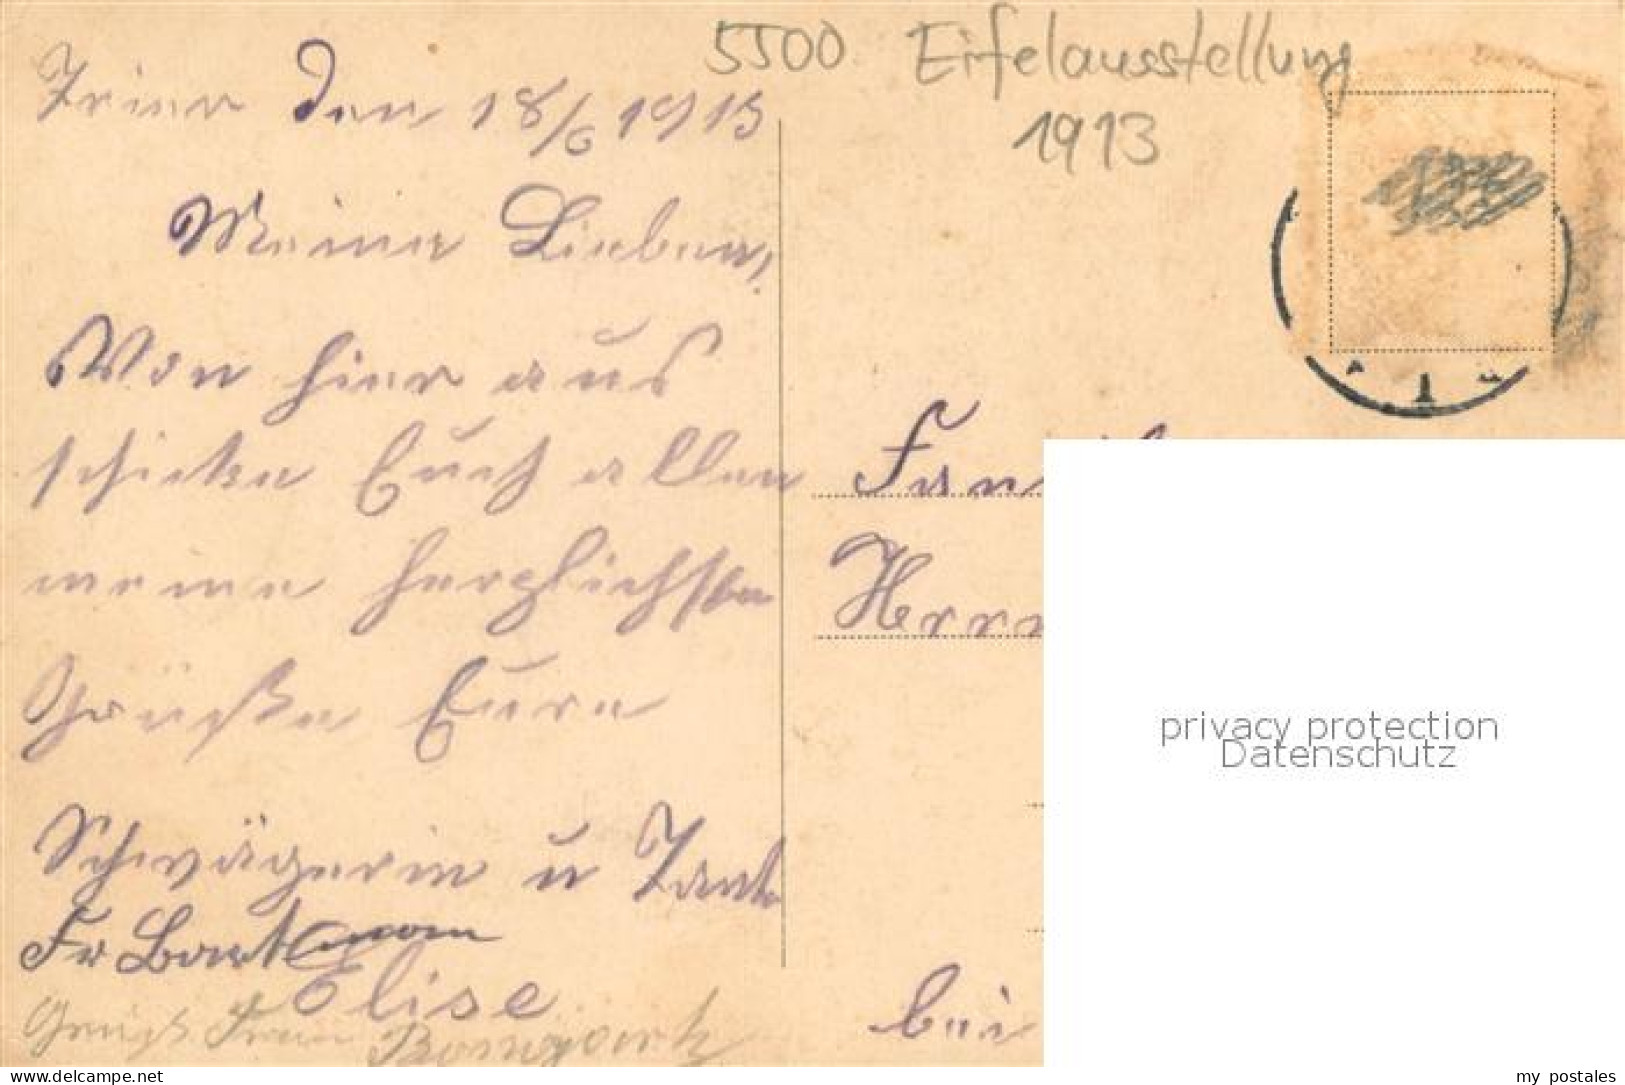 5500 Eifelausstellung
1913
Trier den 18/6 1913
Meine Lieben!
Von hier aus
schicke Euch allen
meine herzlichsten
Grüße Eure
Schwägerin u Tante
Fr
Elise
Gruß Frau
Fam
Herrn
bei
privacy protection
Datenschutz
delcampe.net
my_postales